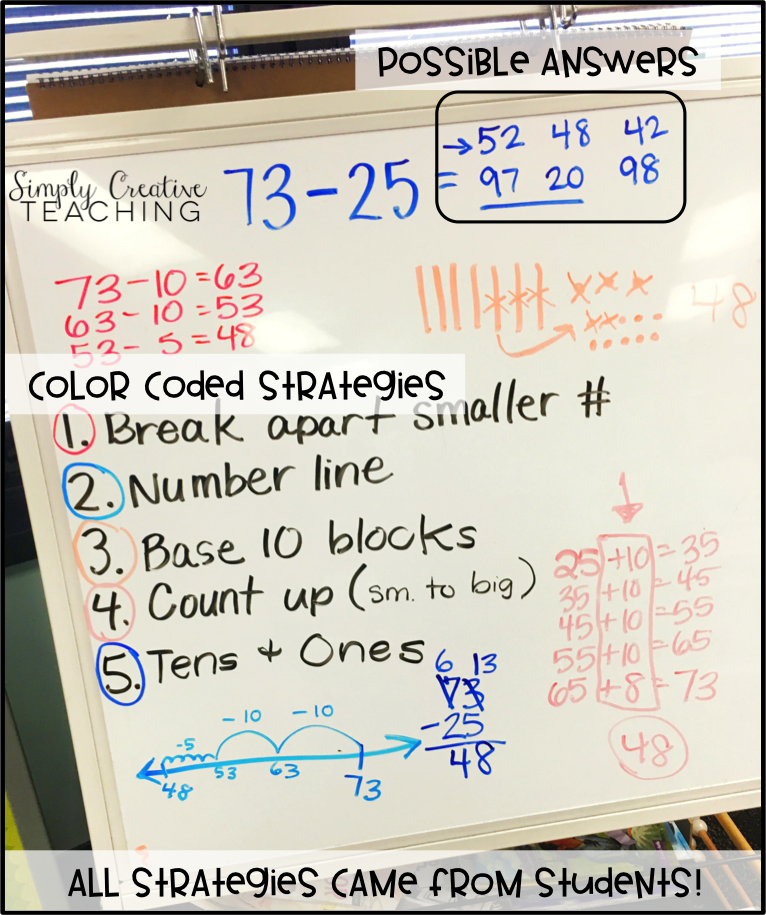 POSSIBLE ANSWERS
→52 48 42
73-25 = 97 20 98
Simply Creative
TEACHING
73-10=63
63-10=53
53-5=48
48
COLOR CODED STRATEGIES
1. Break apart smaller #
2. Number line
3. Base 10 blocks
4. Count up (sm. to big)
5. Tens + Ones
25 +10 = 35
35 +10 = 45
45 +10 = 55
55 +10 = 65
65 +8 = 73
48
6 13
73
-25
48
-5 -10 -10
48 53 63 73
ALL STRATEGIES CAME FROM STUDENTS!